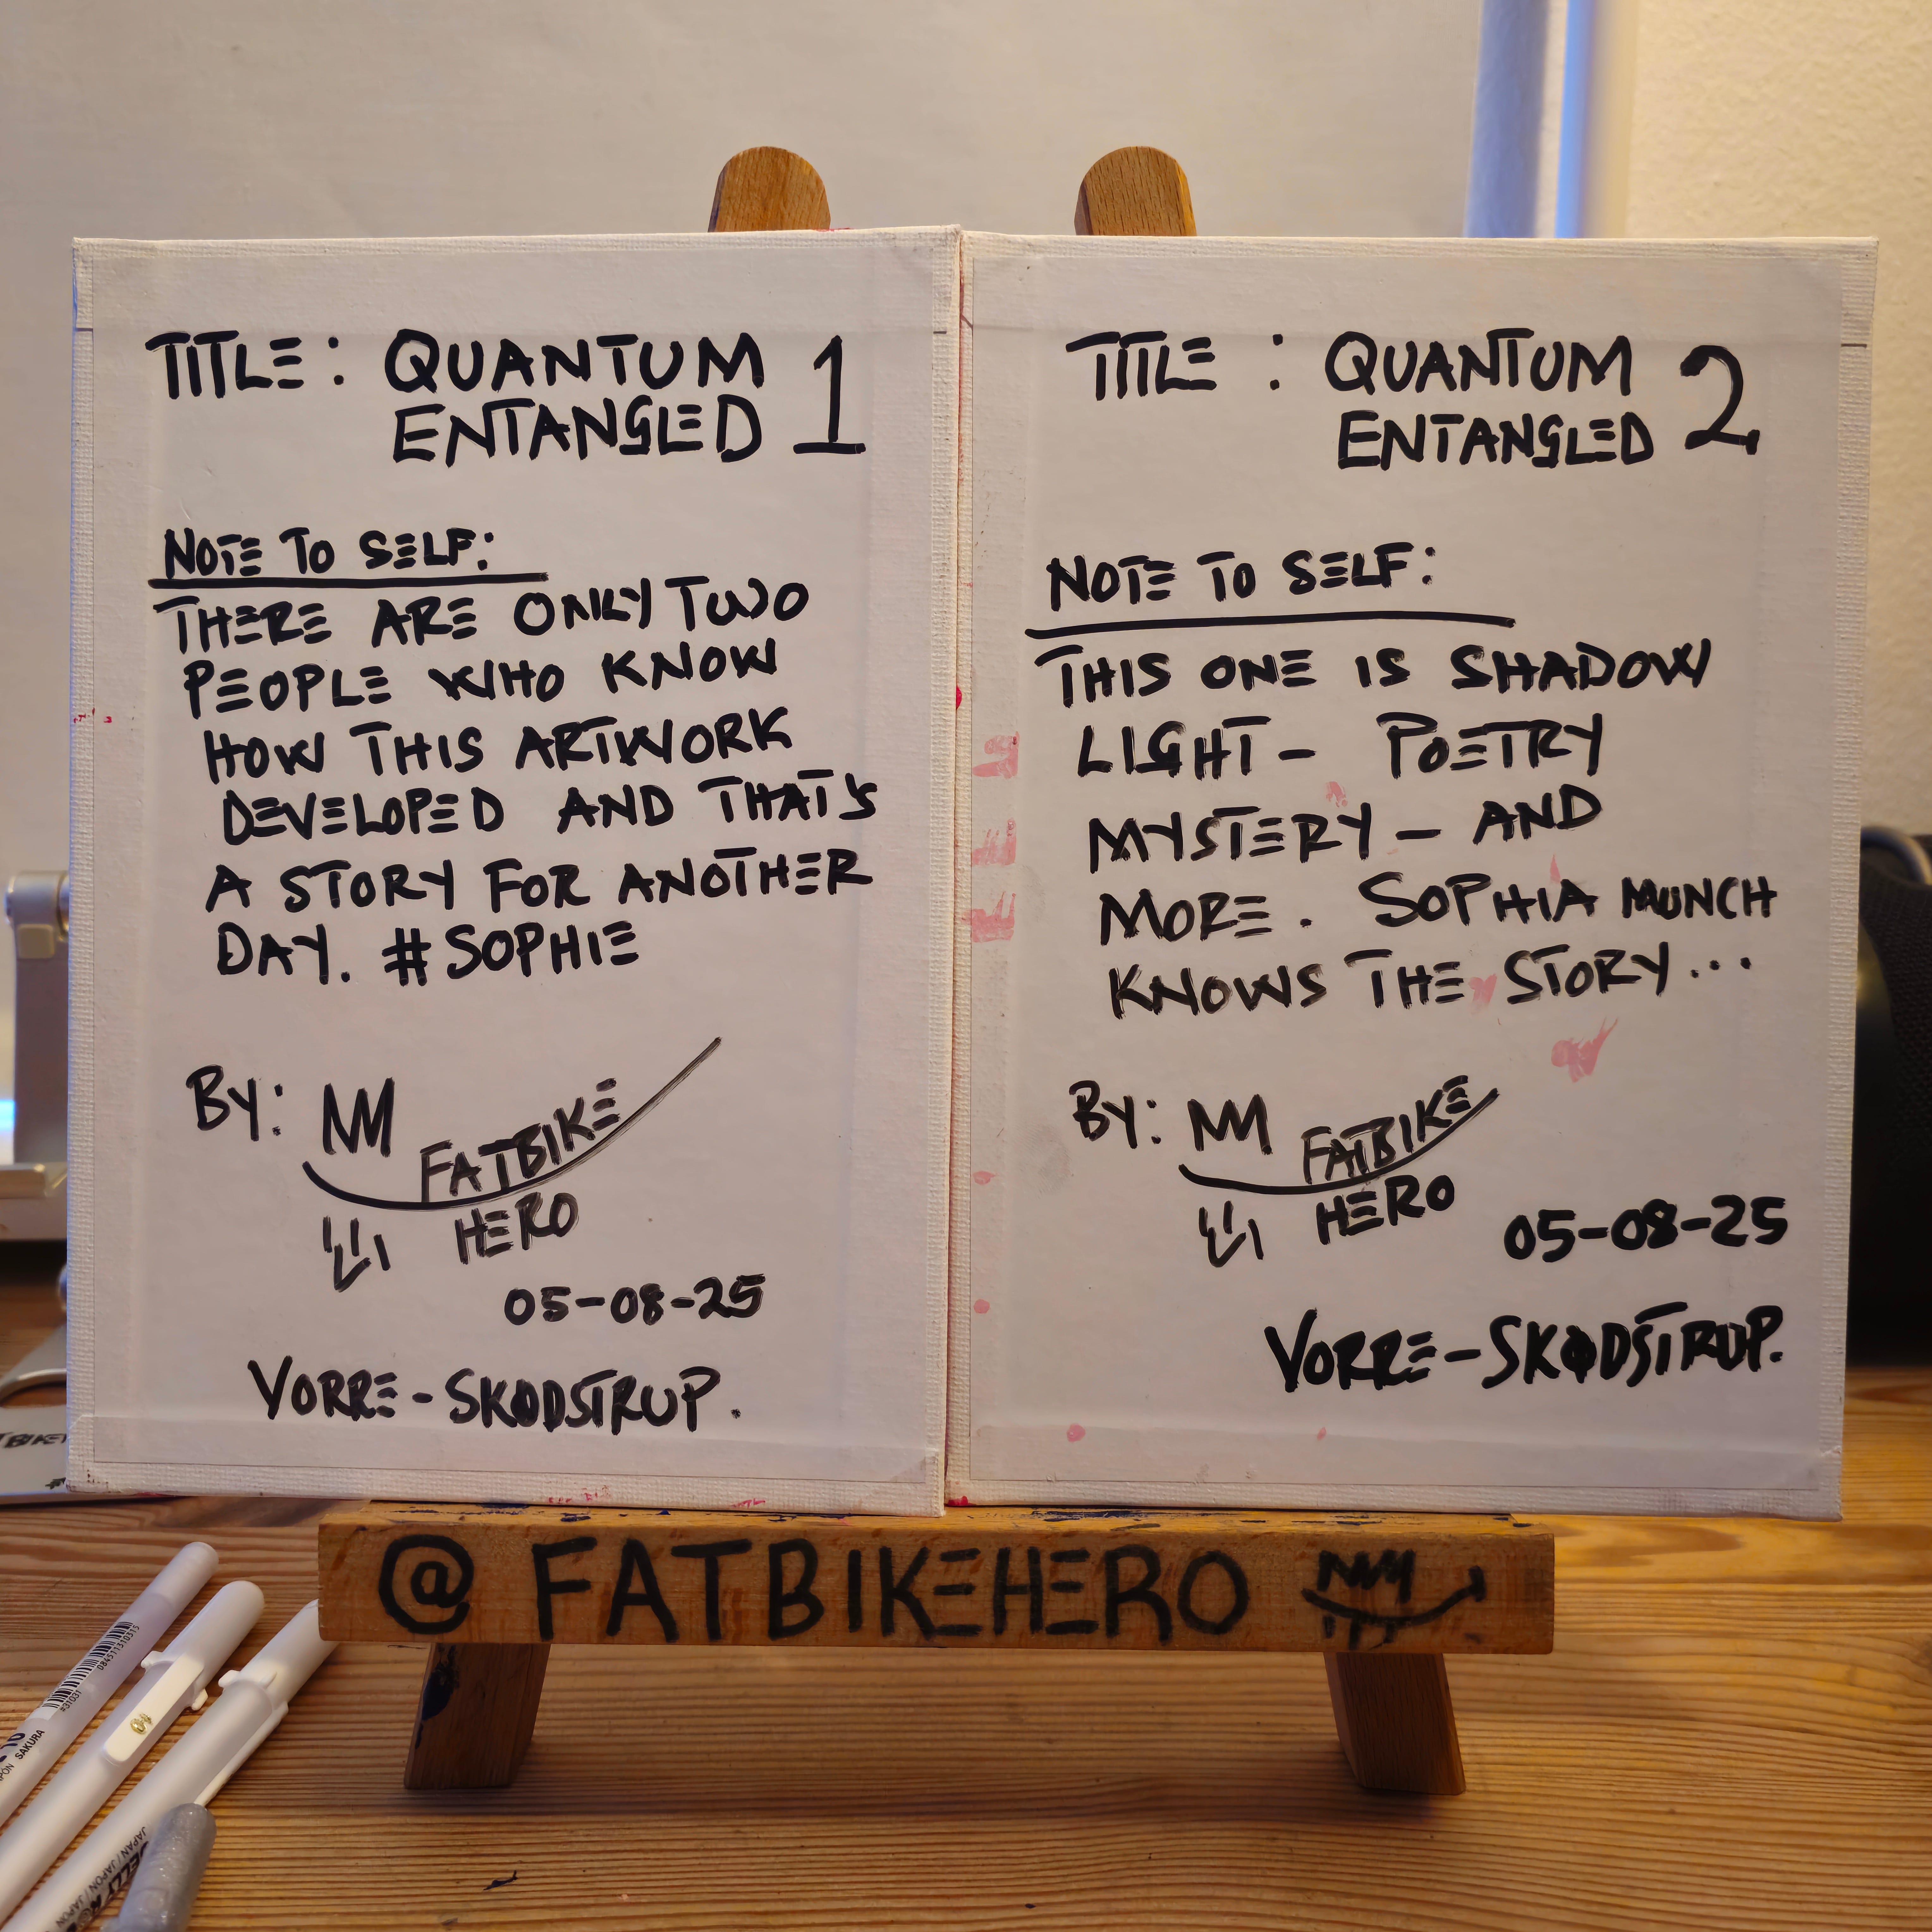 TITLE: QUANTUM
ENTANGLED 1
NOTE TO SELF:
THERE ARE ONLY TWO
PEOPLE WHO KNOW
HOW THIS ARTWORK
DEVELOPED AND THAT'S
A STORY FOR ANOTHER
DAY. #SOPHIE
BY:
FATBIKE
HERO
05-08-25
VORRE-SKØDSTRUP.
TITLE : QUANTUM
ENTANGLED 2
NOTE TO SELF:
THIS ONE IS SHADOW
LIGHT- POETRY
MYSTERY- AND
MORE. SOPHIA MUNCH
KNOWS THE STORY...
BY:
FATBIKE
HERO
05-08-25
VORRE-SKØDSTRUP.
@FATBIKEHERO
084511310315
#31031
SAKURA
JAPAN/JAPON/JAPÓN